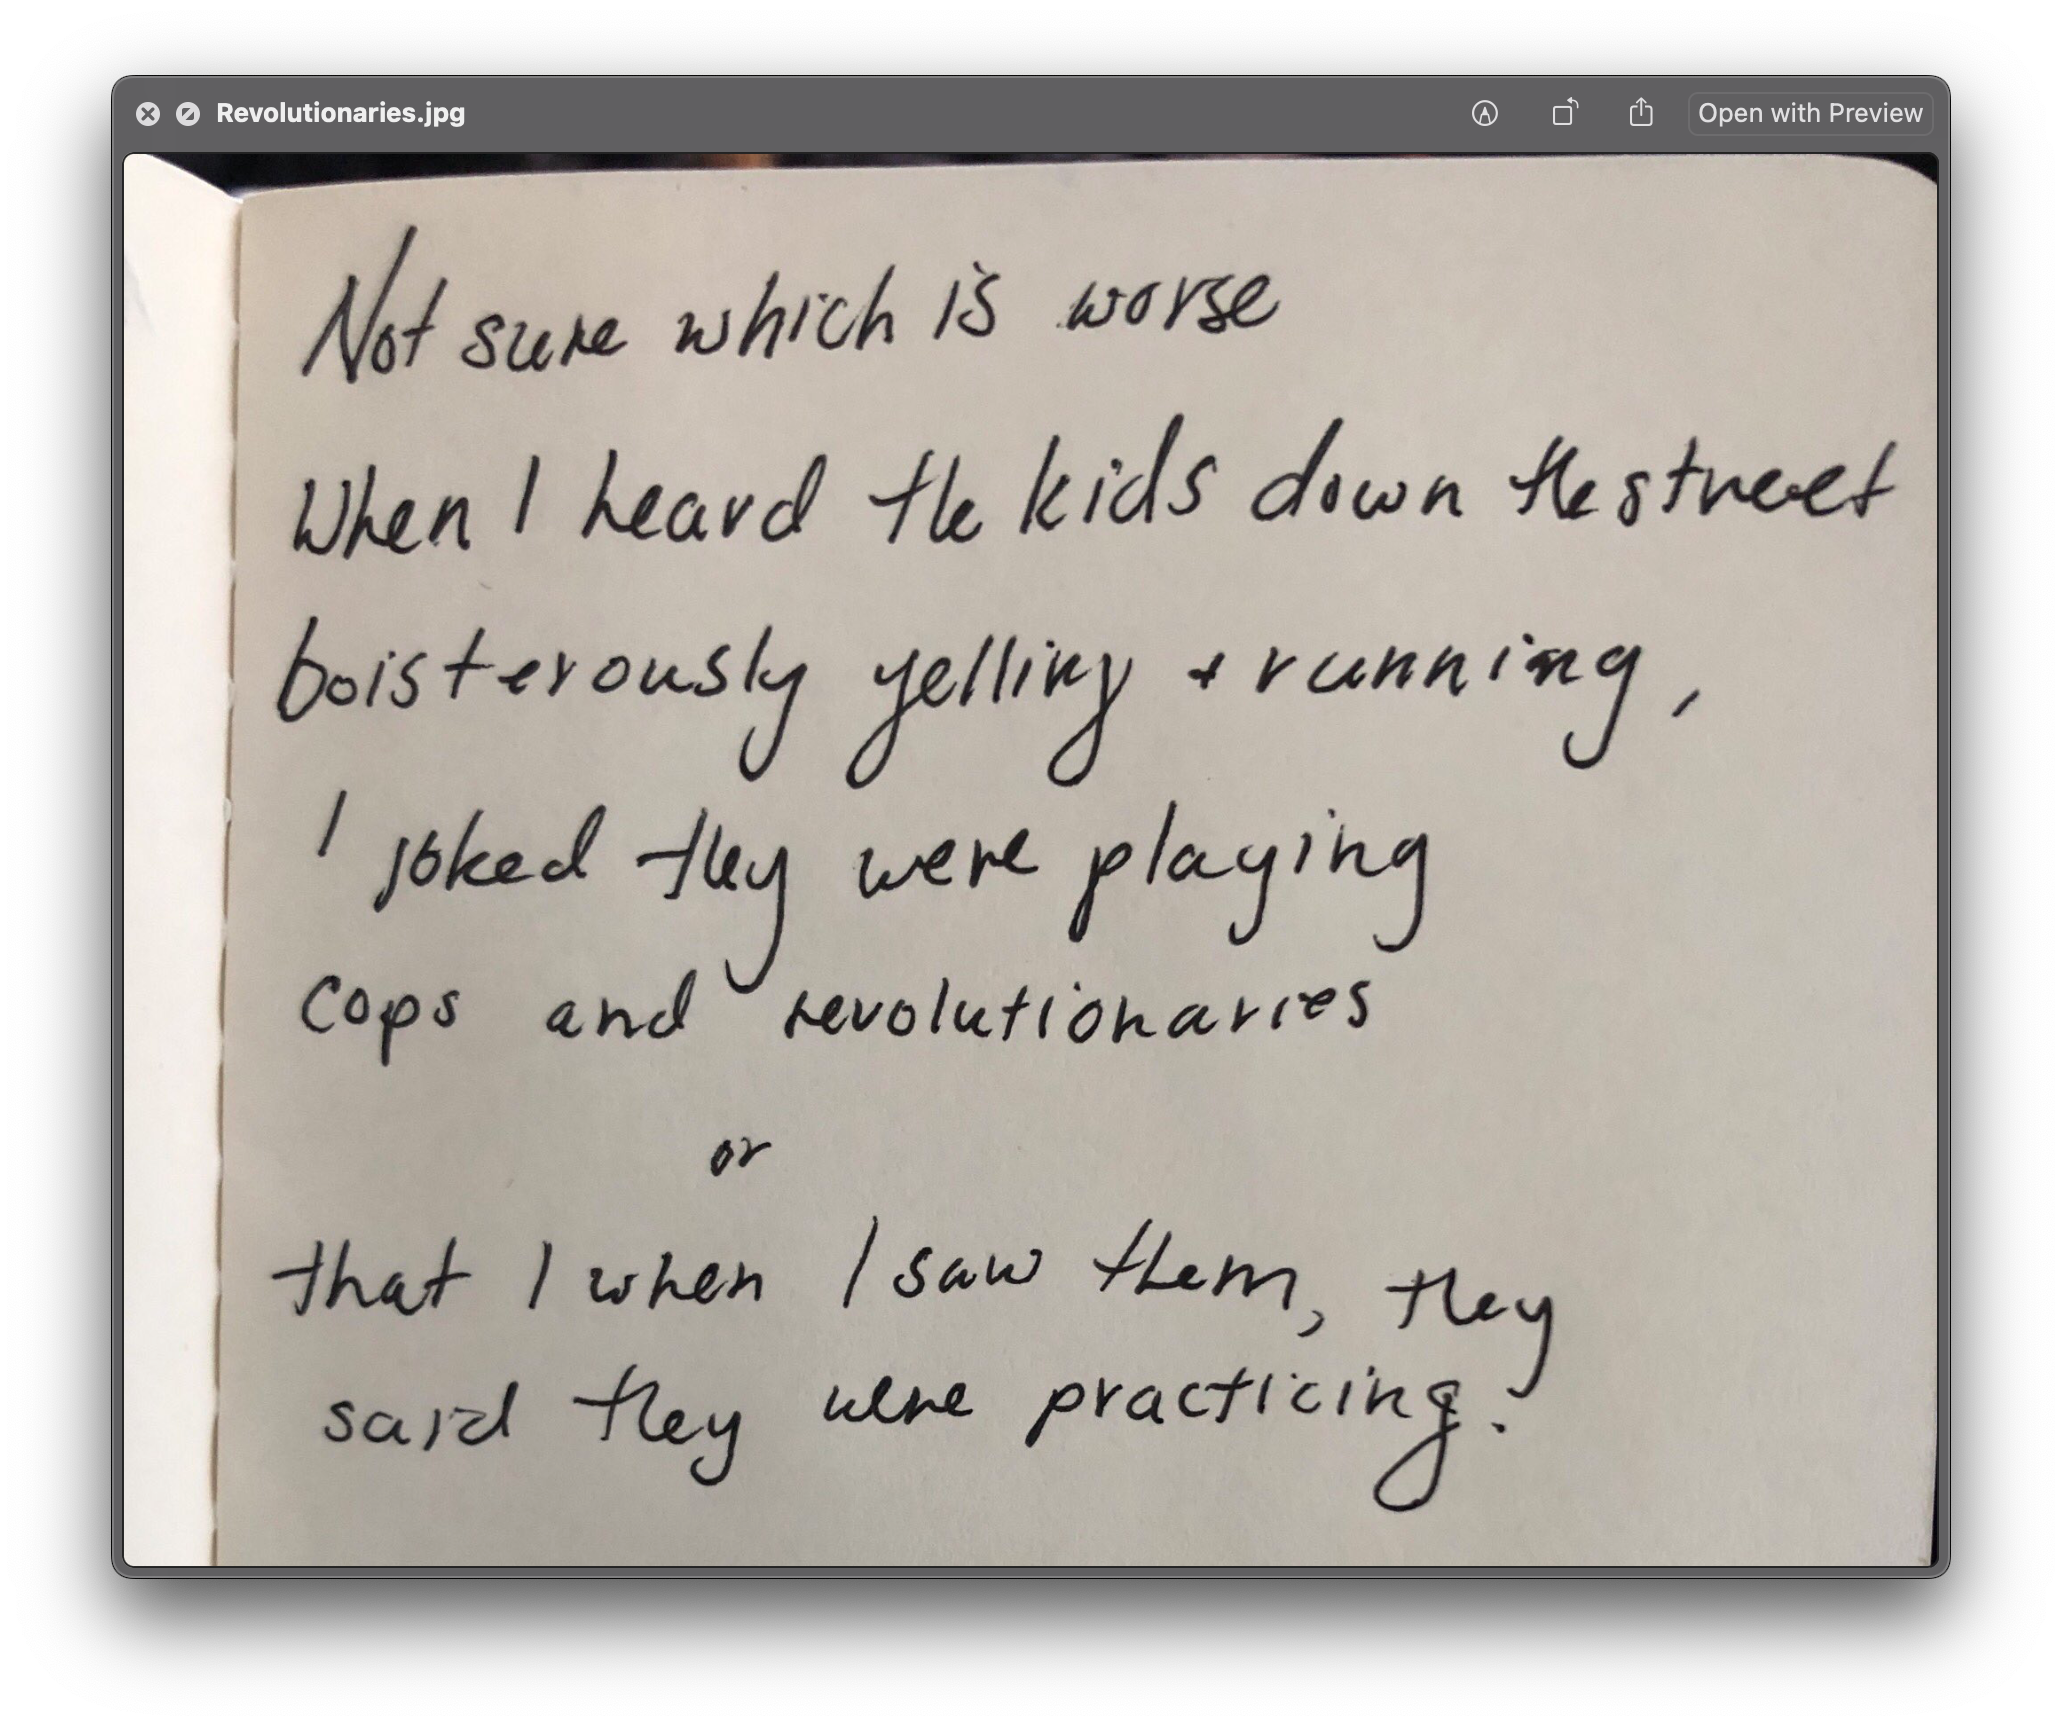 Revolutionaries.jpg
Open with Preview
Not sure which is worse
When I heard the kids down the street
boisterously yelling + running,
I joked they were playing
cops and revolutionaries
or
that I when I saw them, they
said they were practicing.